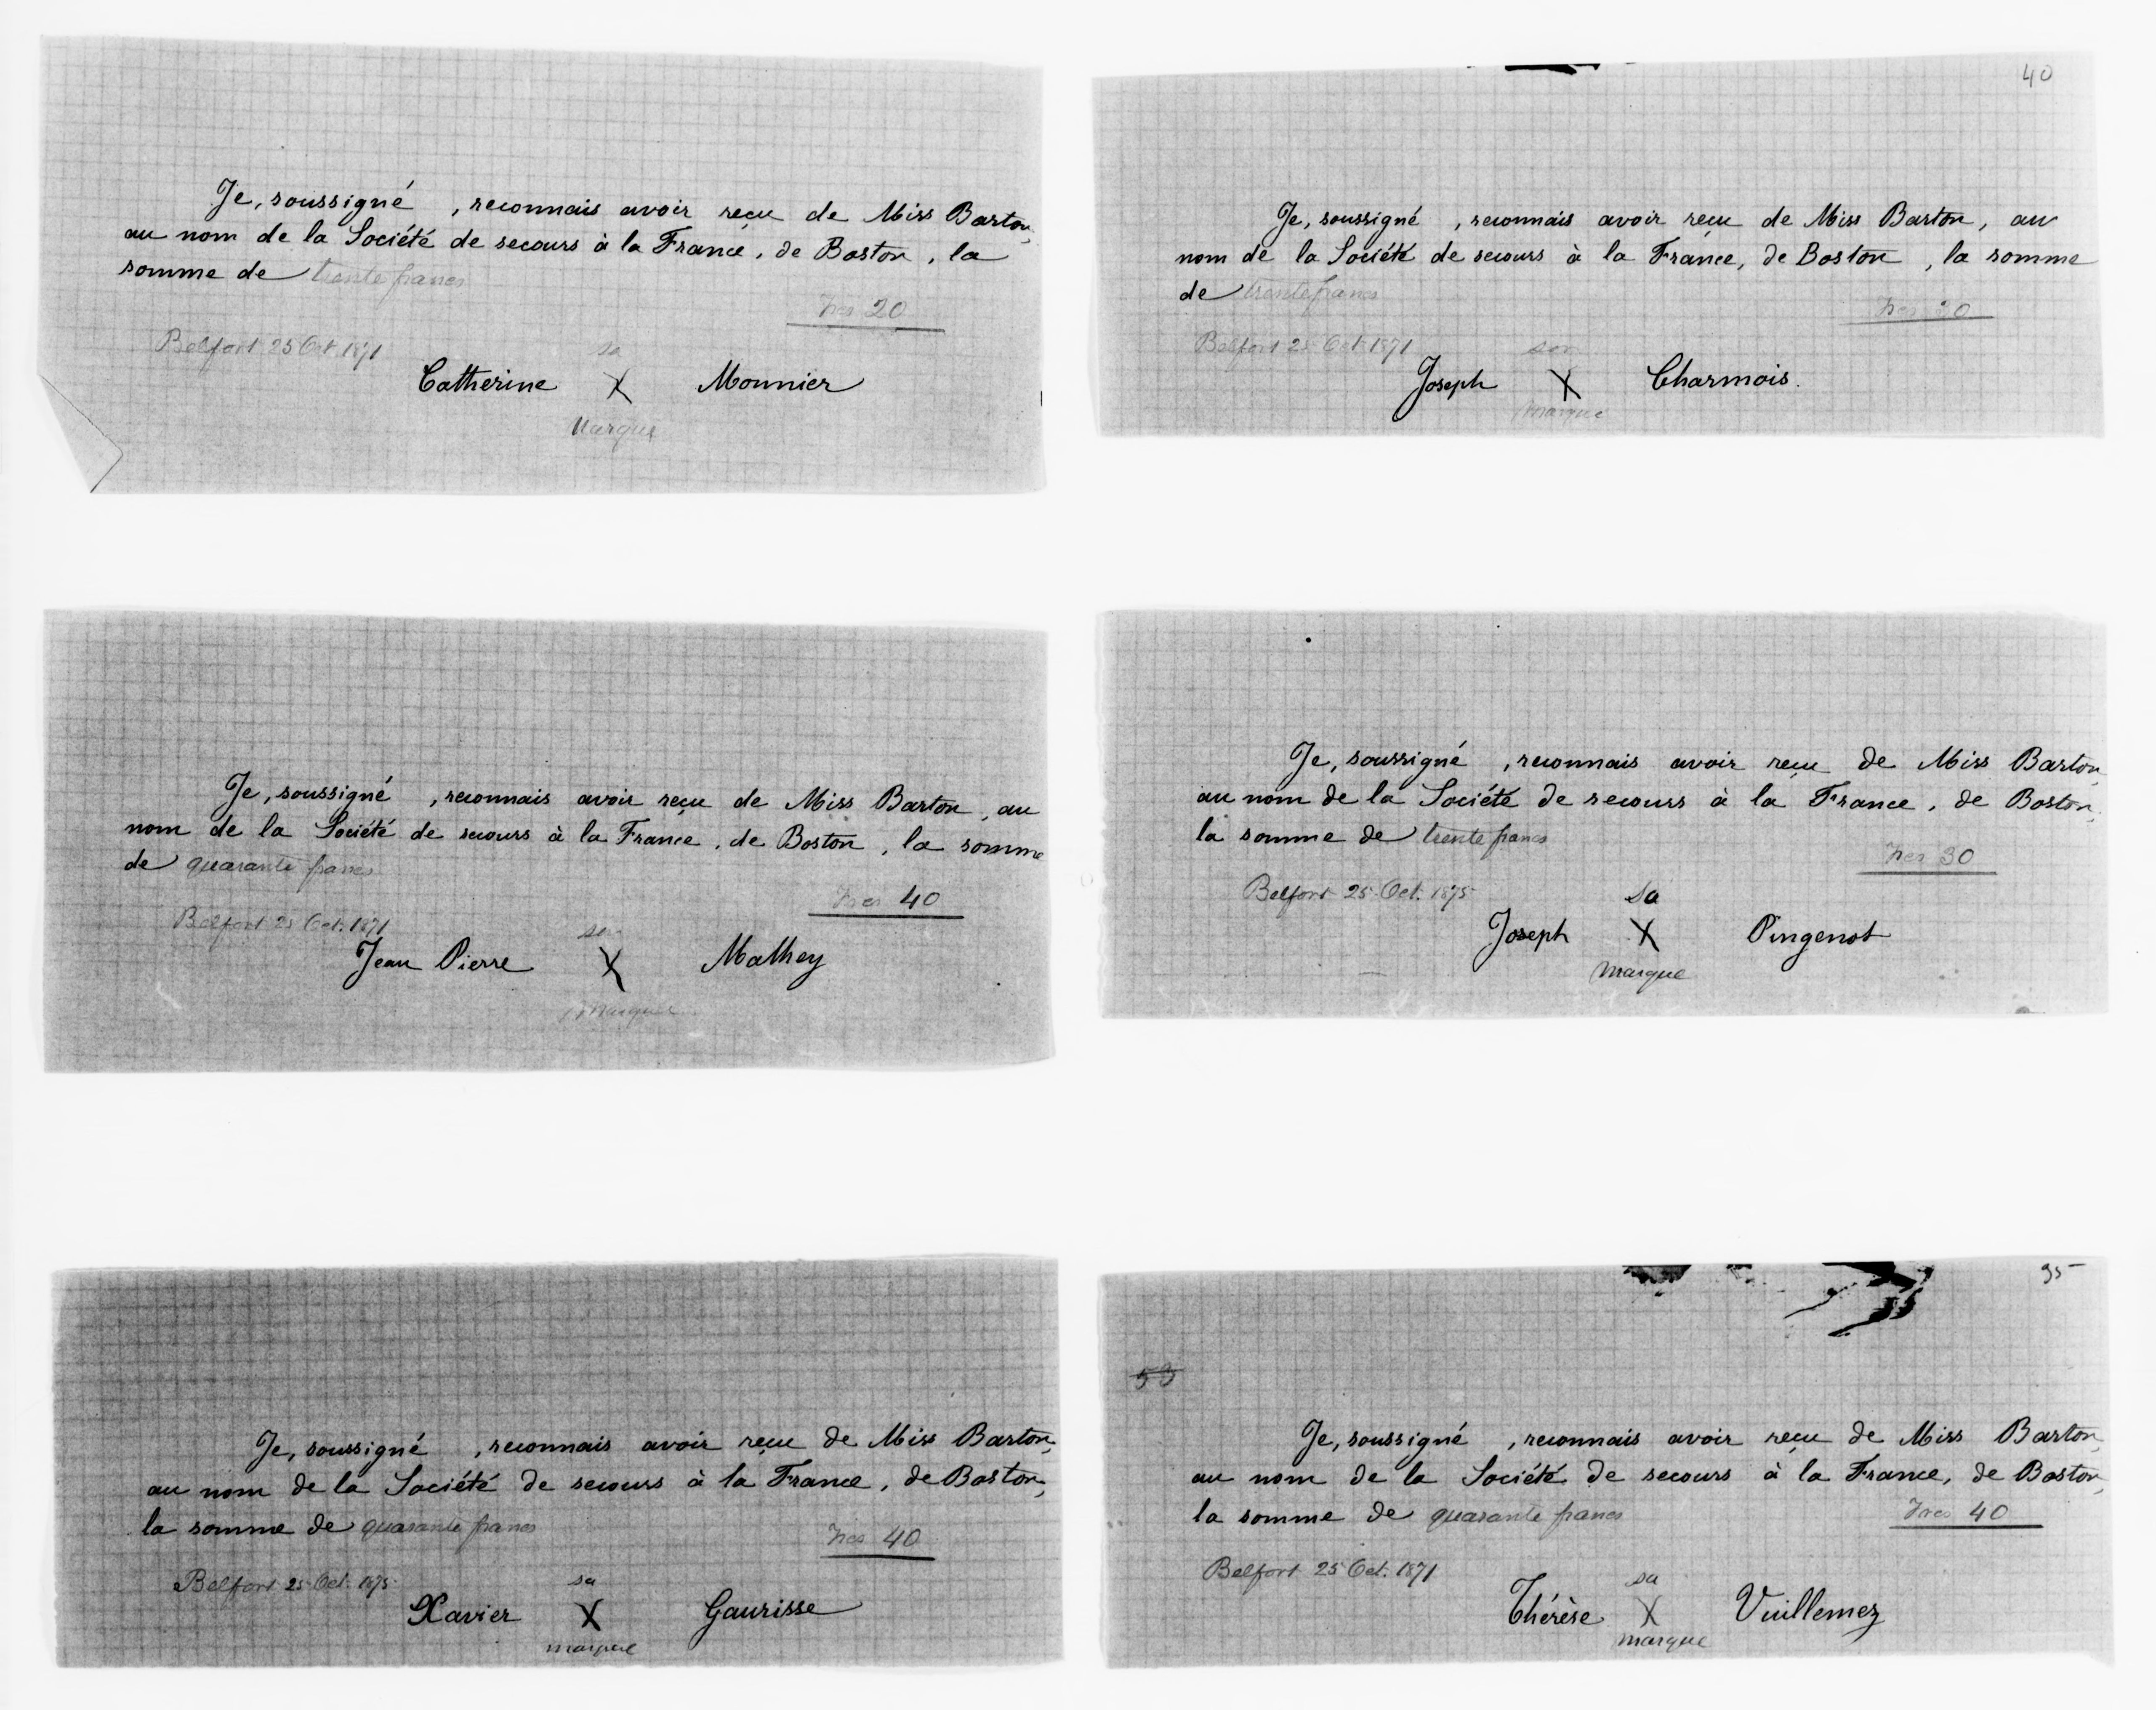 Je, soussigné , reconnais avoir reçu de Miss Barton,
au nom de la Société de secours à la France, de Boston, la
somme de trente francs
Frcs 20
Belfort 25 Oct 1871
sa
Catherine X Monnier
Marque
40
Je, soussigné , reconnais avoir reçu de Miss Barton, au
nom de la Société de secours à la France, de Boston , la somme
de trente francs
Frcs 20
Belfort 25 Oct 1871
son
Joseph X Charmois.
marque
Je, soussigné , reconnais avoir reçu de Miss Barton, au
nom de la Société de secours à la France, de Boston, la somme
de quarante francs
Frcs 40
Belfort 25 Oct. 1871
sa
Jean Pierre X Mathey
marque
Je, soussigné , reconnais avoir reçu de Miss Barton,
au nom de la Société de secours à la France, de Boston,
la somme de trente francs
Frcs 30
Belfort 25 Oct. 1875
sa
Joseph X Pingenot
marque
Je, soussigné , reconnais avoir reçu de Miss Barton,
au nom de la Société de secours à la France, de Boston,
la somme de quarante francs
Frcs 40
Belfort 25 Oct. 1875
sa
Xavier X Gaurisse
marque
95
53
Je, soussigné , reconnais avoir reçu de Miss Barton,
au nom de la Société de secours à la France, de Boston,
la somme de quarante francs
Frcs 40
Belfort 25 Oct. 1871
sa
Thérèse X Vuillemez
marque